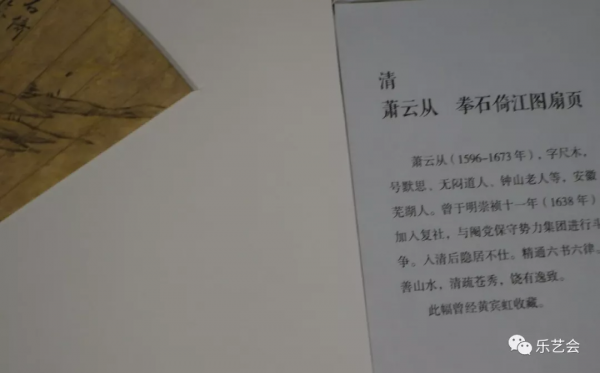 石
倚
清
萧云从 拳石倚江图扇页
萧云从(1596-1673年),字尺木,
号默思、无闷道人、钟山老人等,安徽
芜湖人。曾于明崇祯十一年(1638年)
加入复社,与阉党保守势力集团进行斗
争。入清后隐居不仕。精通六书六律。
善山水,清疏苍秀,饶有逸致。
此幅曾经黄宾虹收藏。
乐艺会